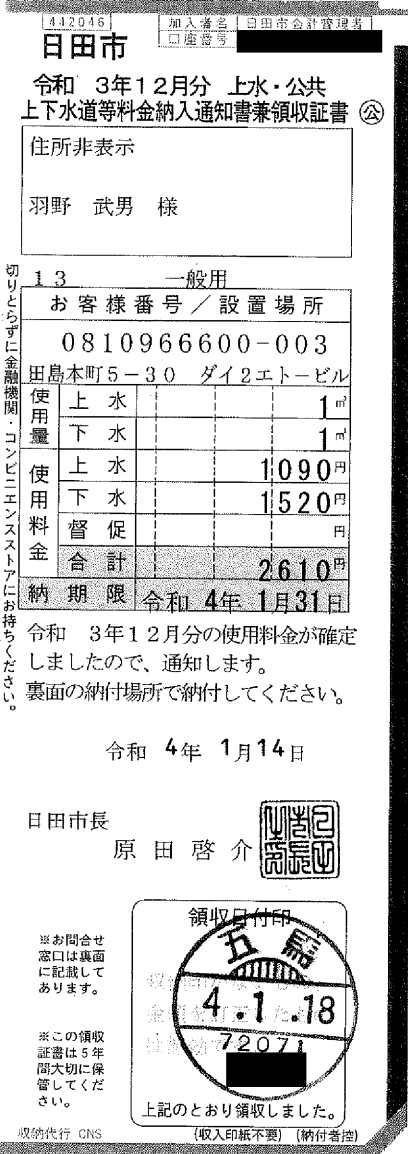 442046
加入者名 日田市会計管理者
口座番号
日田市
令和 3年12月分 上水・公共
上下水道等料金納入通知書兼領収証書 公
住所非表示
羽野 武男 様
切りとらずに金融機関・コンビニエンスストアにお持ちください。
13 一般用
お客様番号/設置場所
0810966600-003
田島本町5-30 ダイ2エトービル
使用量 上水 1㎥
下水 1㎥
使用料金 上水 1090円
下水 1520円
督促 円
合計 2610円
納期限 令和 4年 1月31日
令和 3年12月分の使用料金が確定
しましたので、通知します。
裏面の納付場所で納付してください。
令和 4年 1月14日
日田市長
原田啓介
領収日付印
五馬
4.1.18
72071
※お問合せ
窓口は裏面
に記載して
あります。
※この領収
証書は5年
間大切に保
管してくだ
さい。
上記のとおり領収しました。
収納代行 CNS
(収入印紙不要) (納付者控)